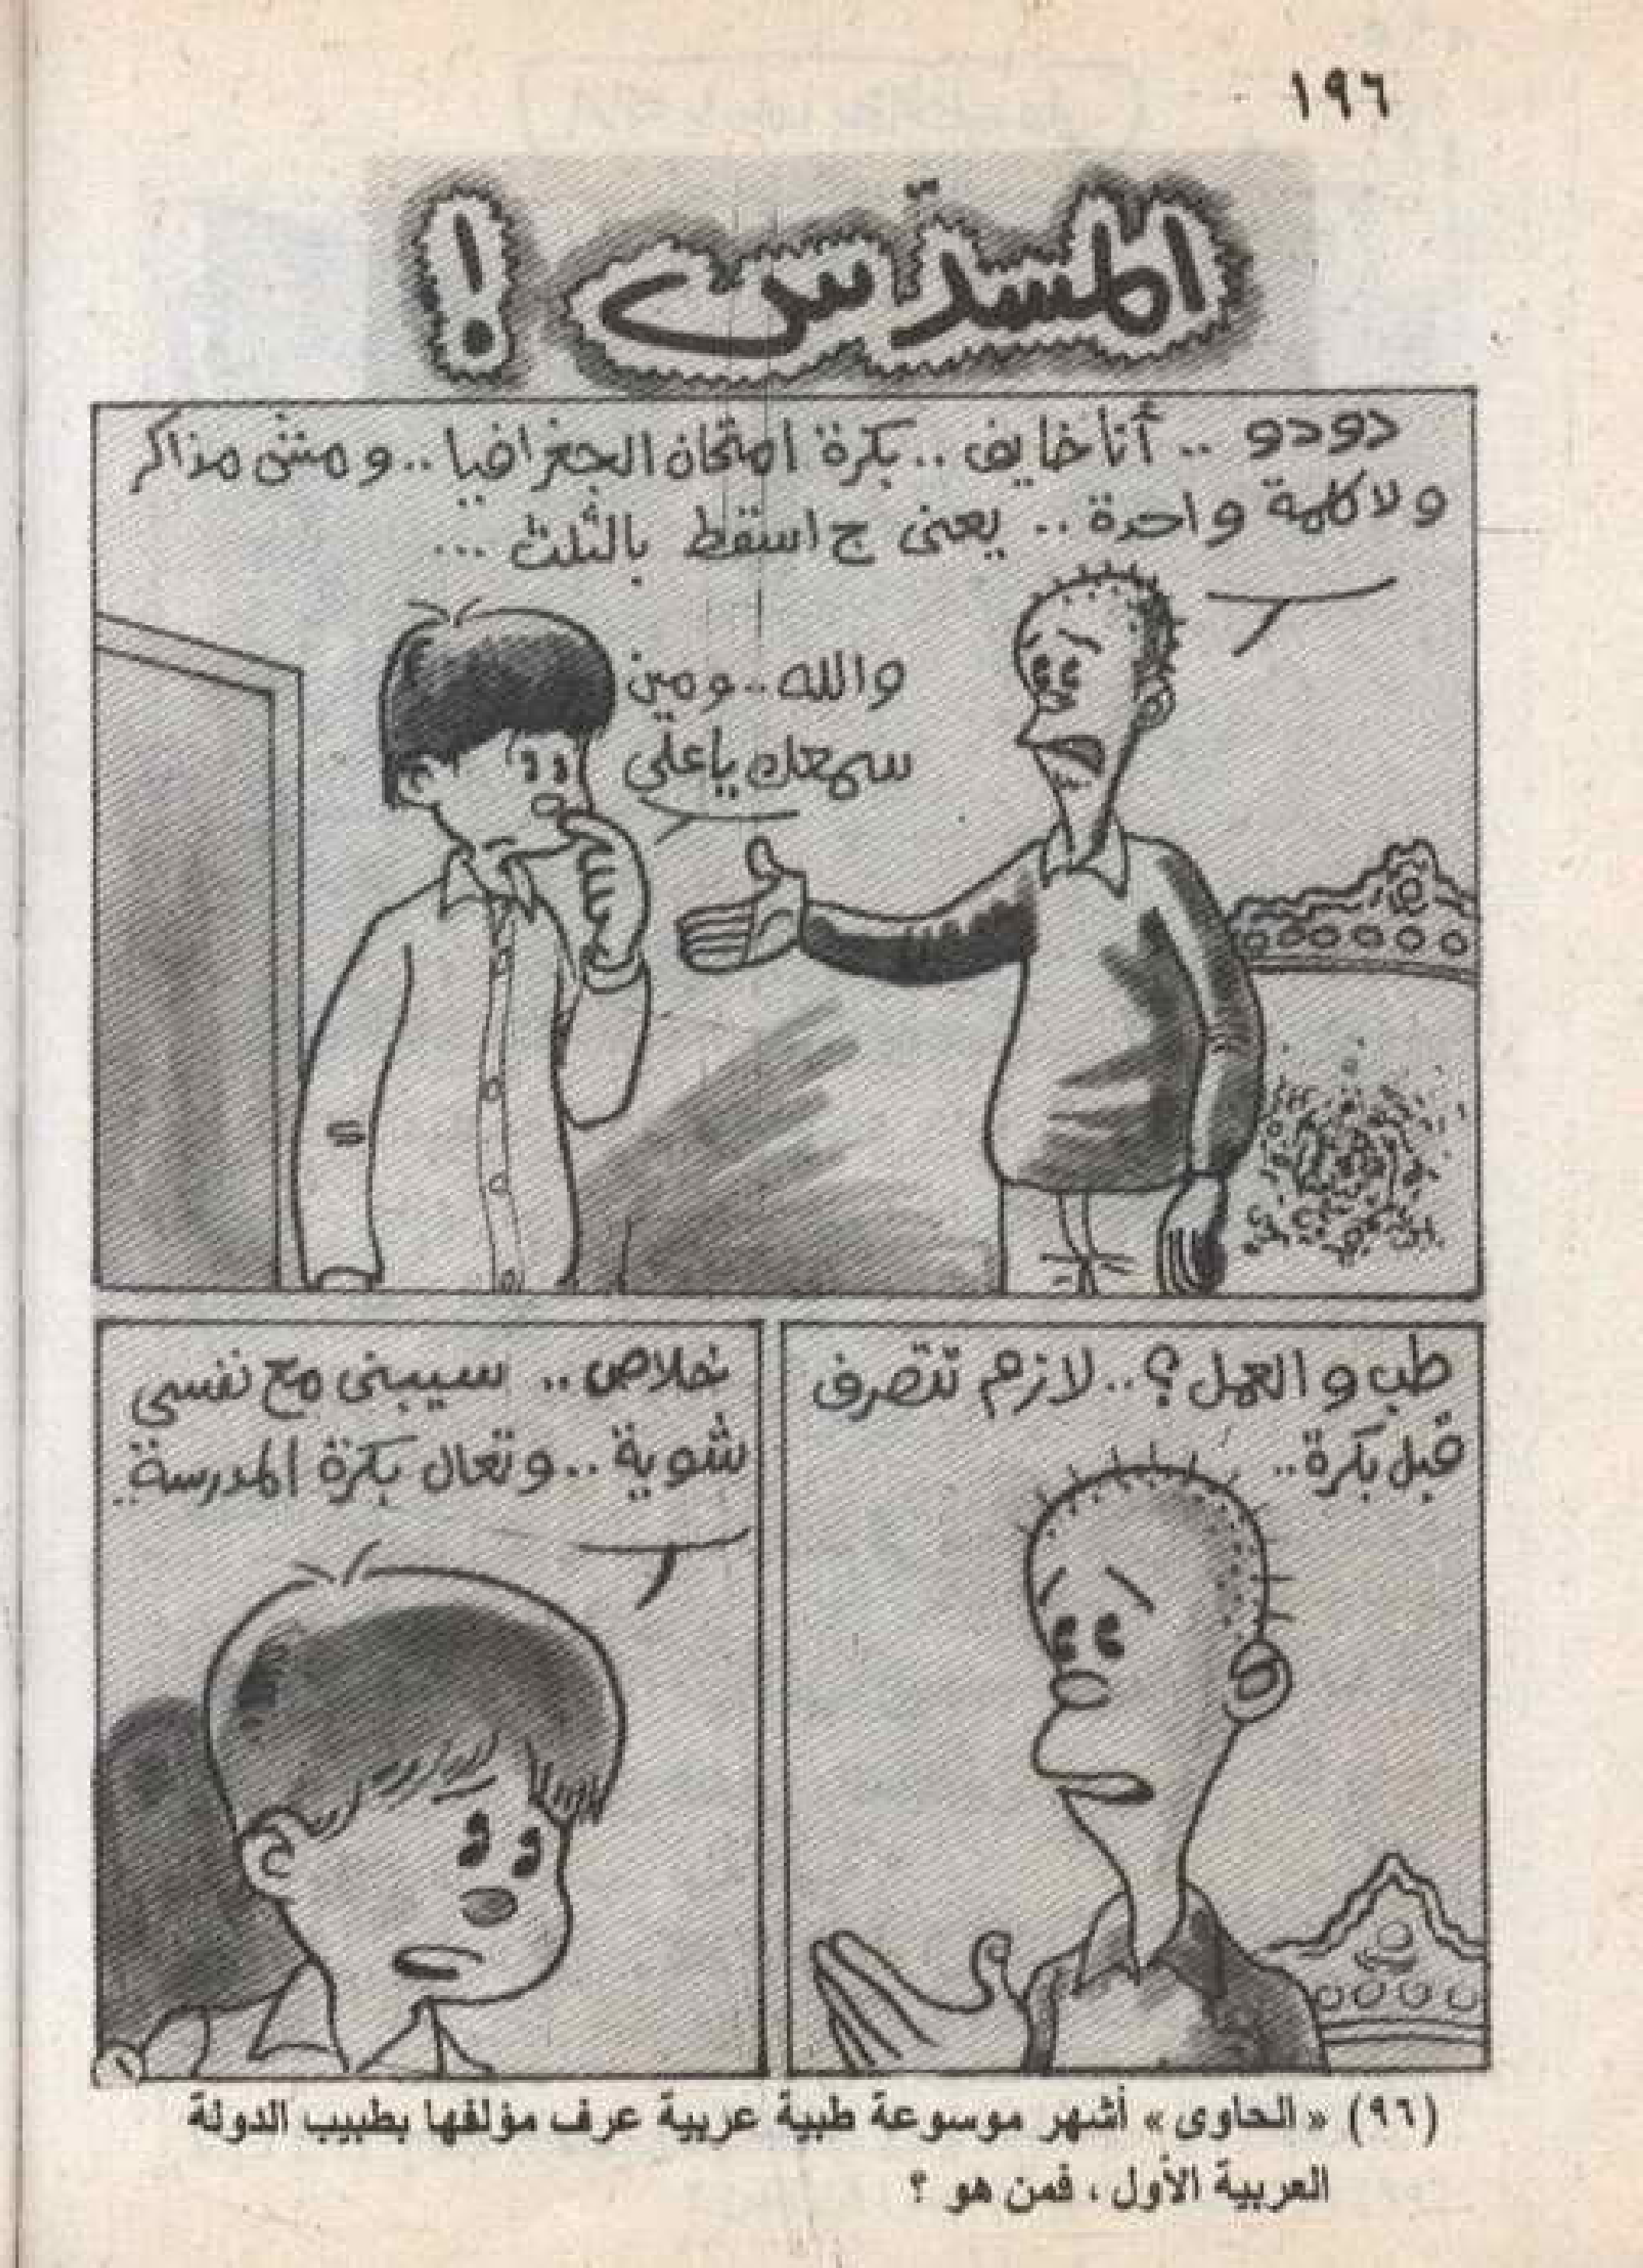 ١٩٦
المسدّس !
دودو .. أنا خايف .. بكرة امتحان الجغرافيا .. ومش مذاكر
ولا كلمة واحدة .. يعنى ح اسقط بالتلت ...
والله .. ومين
سمعك يا على
طب والعمل ؟ .. لازم نتصرف
قبل بكرة ..
خلاص .. سيبنى مع نفسى
شوية .. وتعال بكرة المدرسة ..
١
(٩٦) « الحاوى » أشهر موسوعة طبية عربية عرف مؤلفها بطبيب الدولة
العربية الأول ، فمن هو ؟